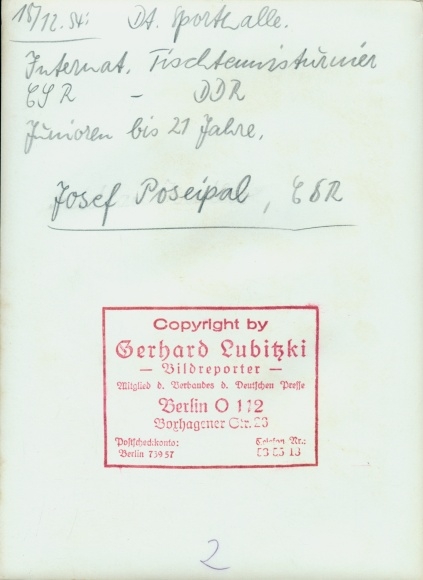 18/12. 54. Dt. Sporthalle.
Internat. Tischtennisturnier
ČSR - DDR
Junioren bis 21 Jahre.
Josef Poseipal, ČSR
Copyright by
Gerhard Lubitzki
— Bildreporter —
Mitglied d. Verbandes d. Deutschen Presse
Berlin O 112
Boxhagener Str. 23
Postscheckkonto: Telefon Nr.:
Berlin 739 57 53 55 13
2